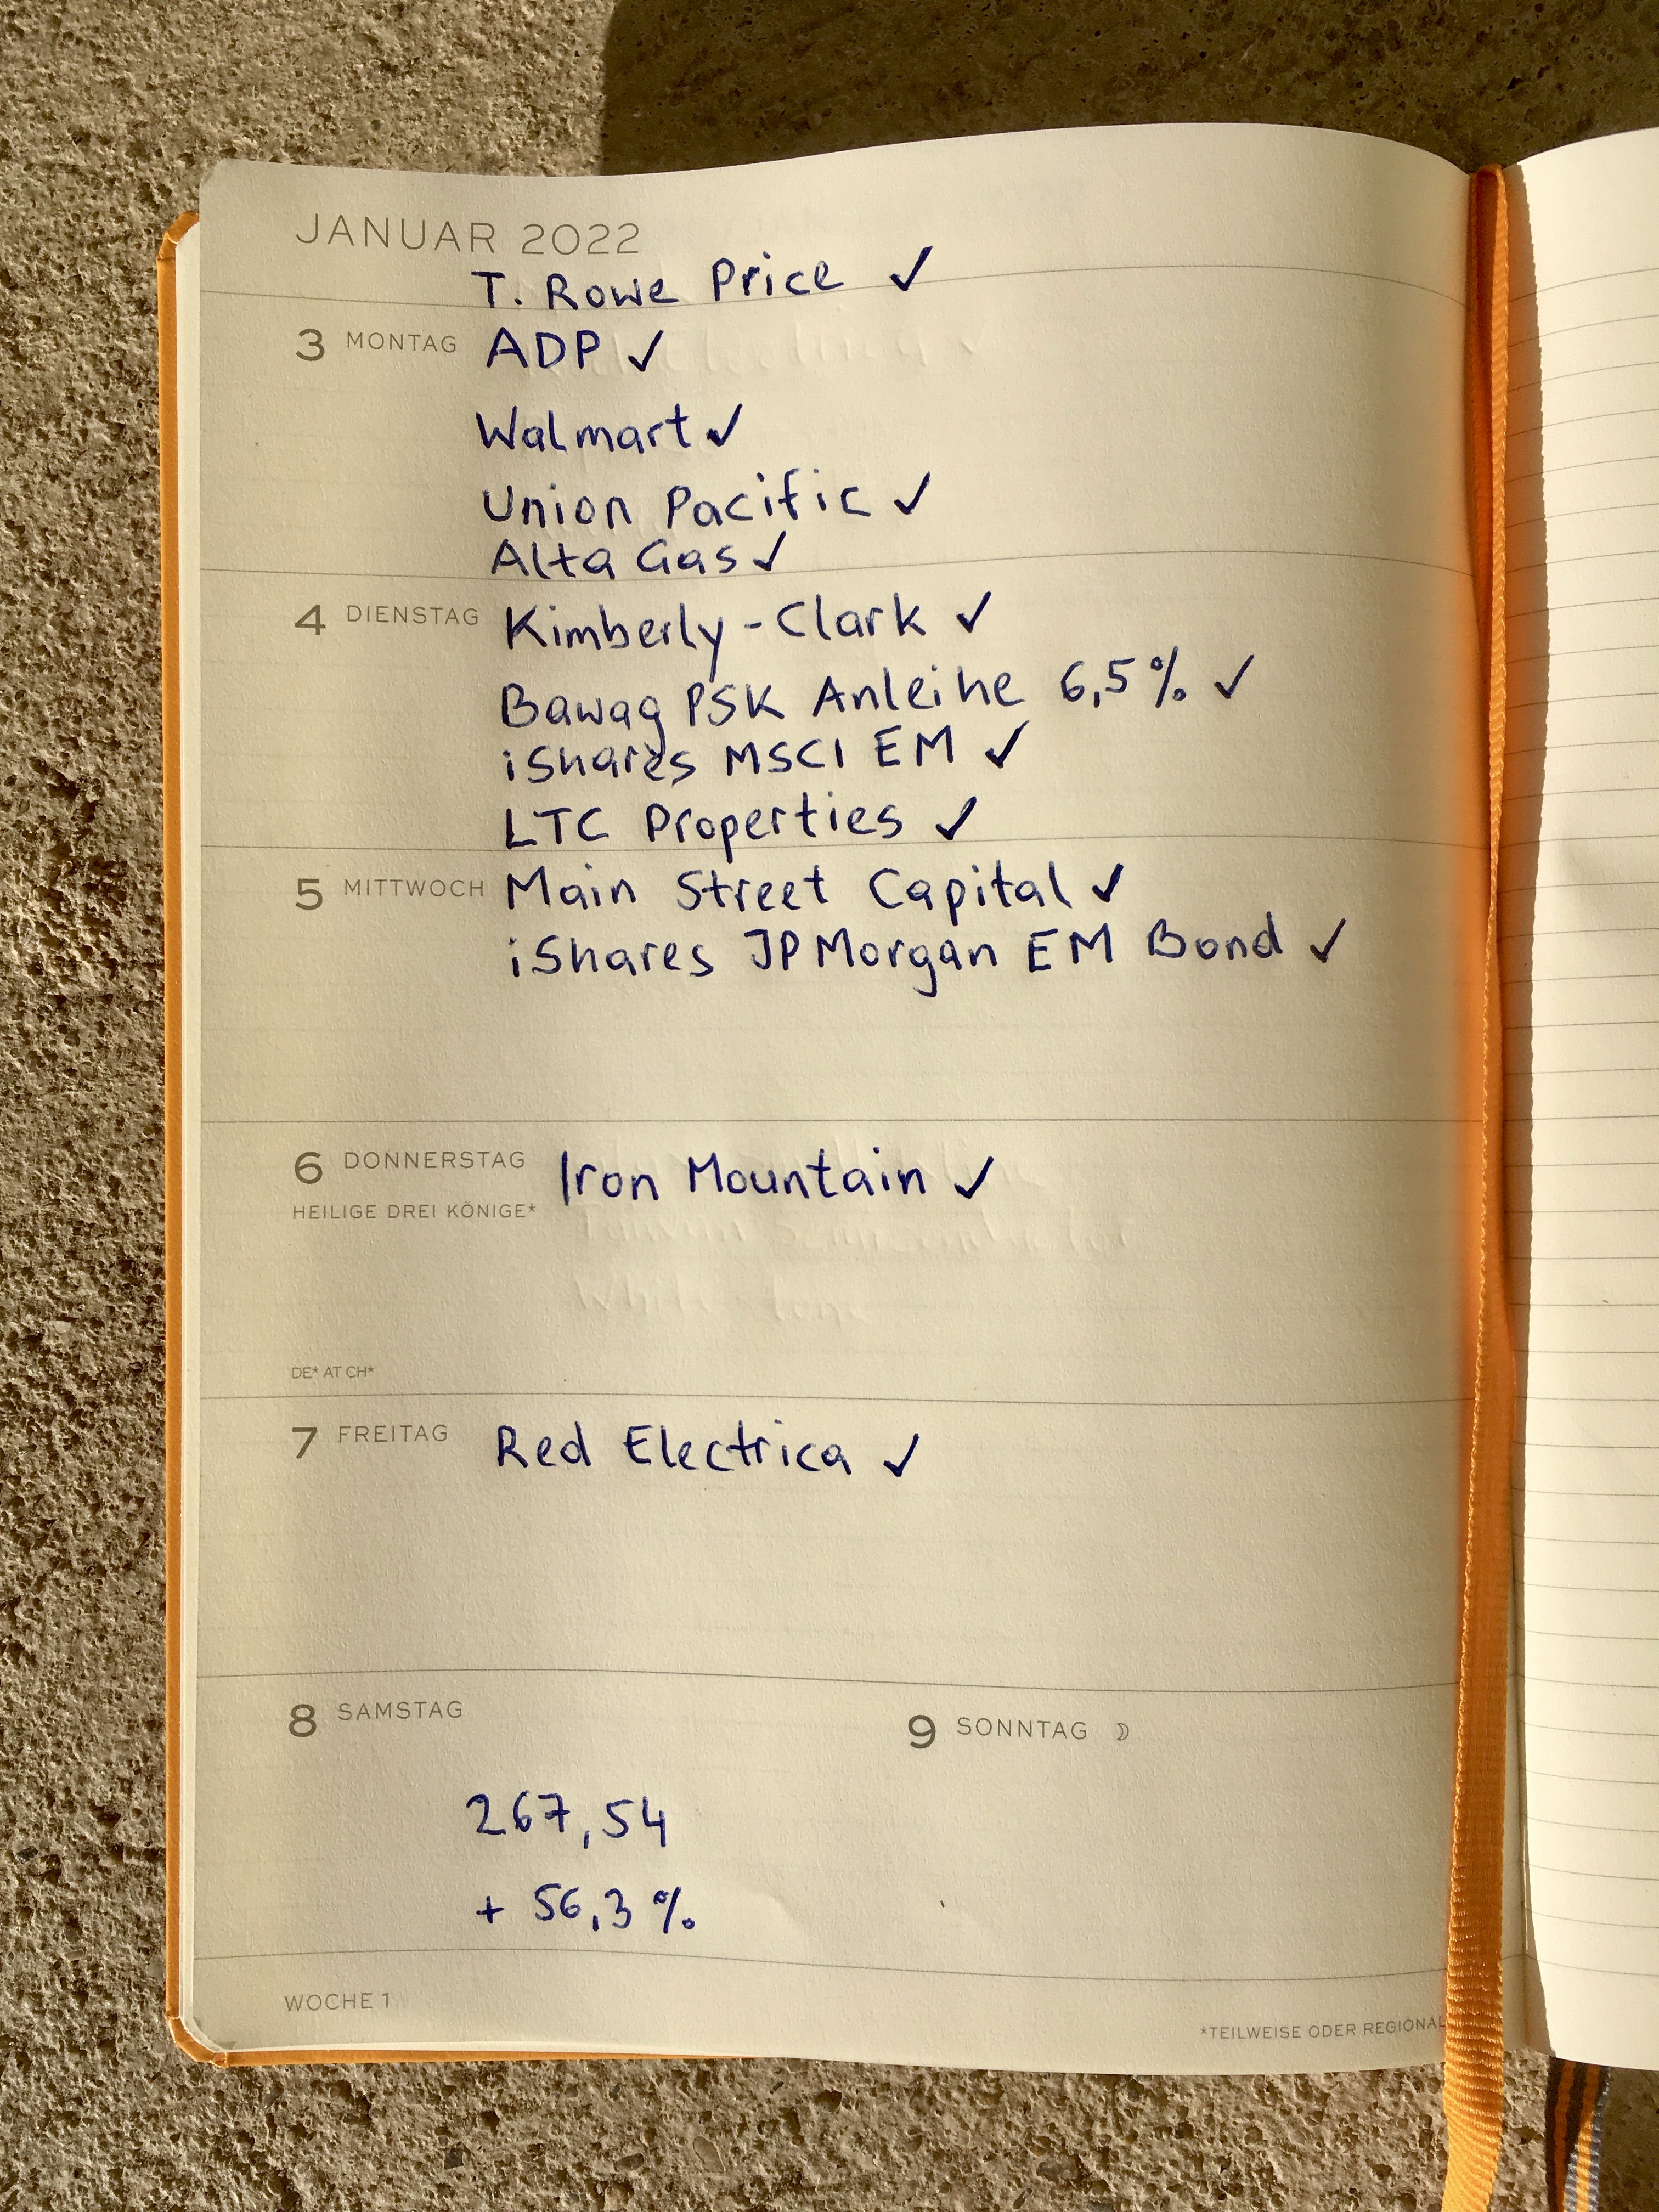 JANUAR 2022
T. Rowe Price ✓
3 MONTAG ADP ✓
Walmart ✓
Union Pacific ✓
Alta Gas ✓
4 DIENSTAG Kimberly-Clark ✓
Bawag PSK Anleihe 6,5% ✓
iShares MSCI EM ✓
LTC Properties ✓
5 MITTWOCH Main Street Capital ✓
iShares JPMorgan EM Bond ✓
6 DONNERSTAG Iron Mountain ✓
HEILIGE DREI KÖNIGE*
DE* AT CH*
7 FREITAG Red Electrica ✓
8 SAMSTAG
9 SONNTAG ☽
267,54
+ 56,3%
WOCHE 1
*TEILWEISE ODER REGIONAL